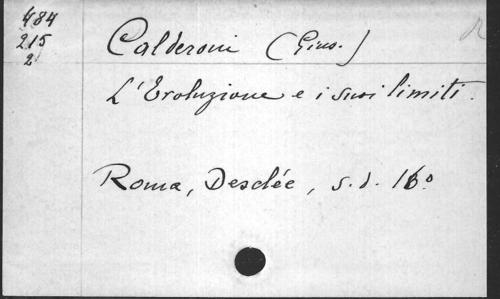 484
215
2
Calderoni (Gius.)
L'Evoluzione e i suoi limiti.
Roma, Desclée, s.d. 16°